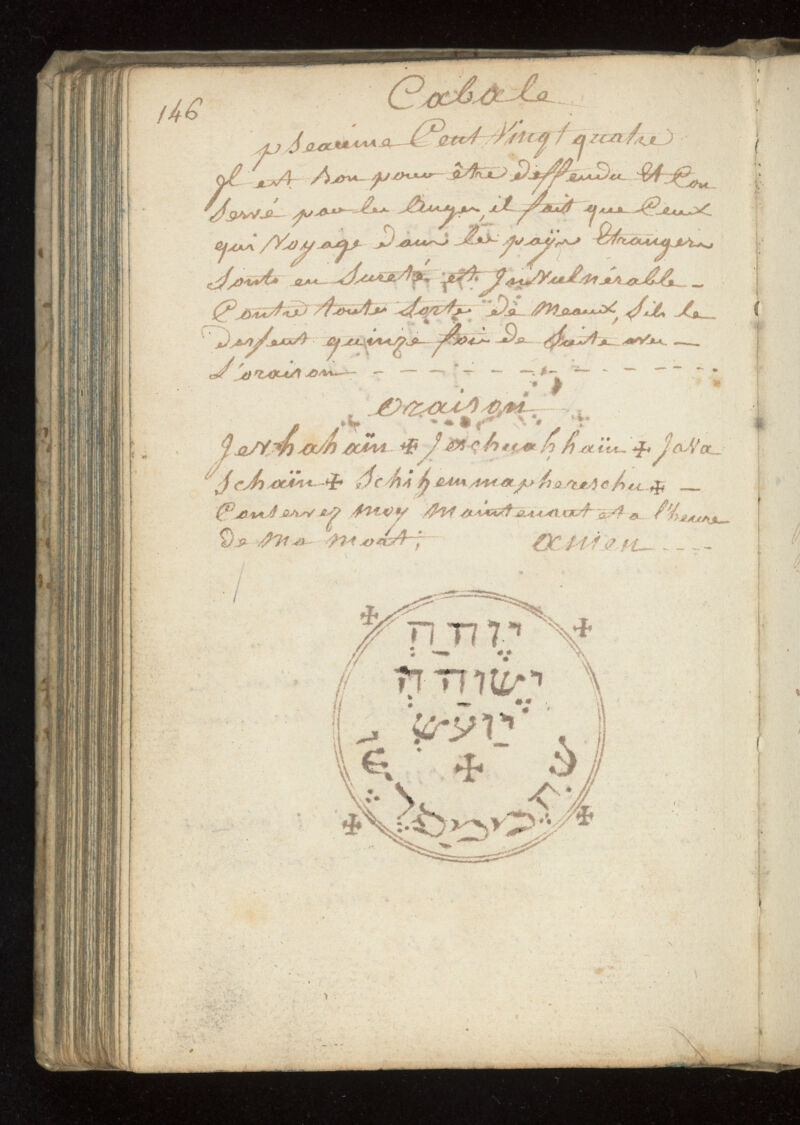 146
Cabale
pseaume Cent Vingt quatre
Il est Bon pour être deffendu Et Con
Servé par les Anges, il fait que Ceux
qui Voyage dans les païs Etrangers
Sonts en Sureté et Invulnérable -
Contre toutes Sorte de Meaux, Sils le
disent quinze fois de Suite avec -
L'oraison
oraison
Jevhahaïn ✠ Jeschuahhaïn ✠ Java
Schaïn ✠ Schihemmaphereschu ✠ -
Conservez Moy Maintenant et a l'heure
de Ma Mort; amen
יוחה
ישוהה
יועש
✠